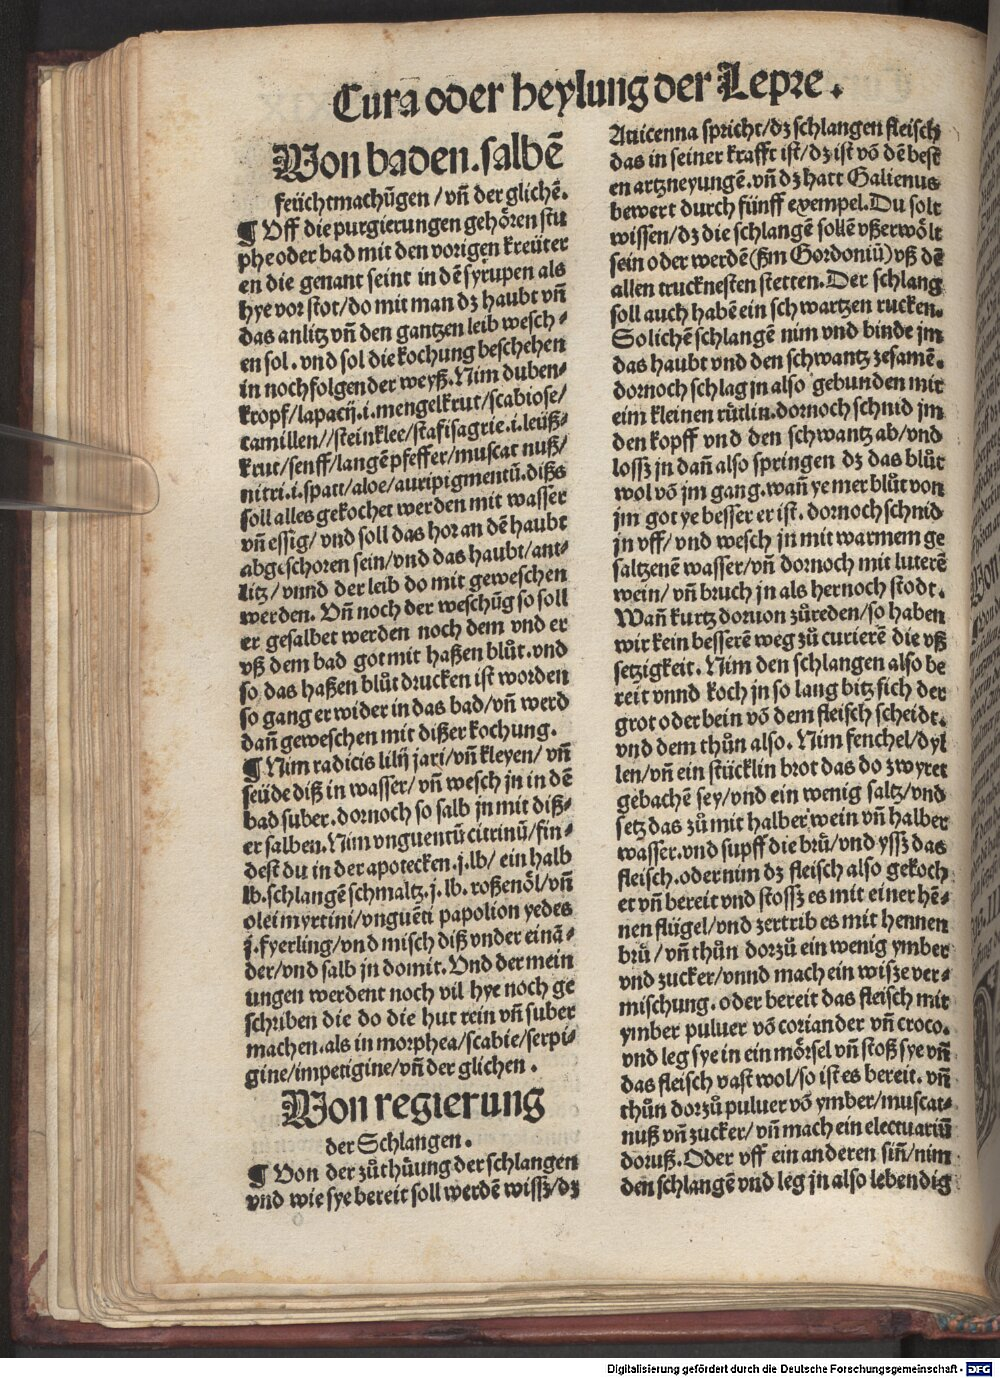 Cura oder heylung der Lepre.
Von baden. salbē
feüchtmachūgen / vñ der glichē.
¶ Vff die purgierungen gehören stu
phe oder bad mit den vorigen kreüter
en die genant seint in dē syrupen als
hye vor stot/do mit man dz haubt vñ
das anlitz vñ den gantzen leib wesch-
en sol. vnd sol die kochung beschehen
in nochfolgender weyß. Nim duben-
kropf/lapacij.i.mengelkrut/scabiose/
camillen//steinklee/stafisagrie.i.leüß-
krut/senff/langē pfeffer/muscat nuß/
nitri.i.spatt/aloe/auripigmentū.dißs
soll alles gekochet werden mit wasser
vñ essig/ vnd soll das hor an dē haubt
abgeschoren sein/vnd das haubt/ant-
litz/ vnnd der leib do mit geweschen
werden. Vñ noch der weschūg so soll
er gesalbet werden noch dem vnd er
vß dem bad got mit haßen blůt. vnd
so das haßen blůt drucken ist worden
so gang er wider in das bad/vñ werd
dañ geweschen mit dißer kochung.
¶ Nim radicis lilij jari/vñ kleyen/ vñ
seüde diß in wasser/ vñ wesch jn in dē
bad suber. dornoch so salb jn mit diß-
er salben. Nim vnguentū citrinū/fin-
dest du in der apotecken.j.lb/ ein halb
lb. schlangē schmaltz.j.lb. roßenöl/vñ
olei myrtini/vnguēti papolion yedes
j. fyerling/vnd misch diß vnder einā-
der/vnd salb jn domit. Vnd der mein
ungen werdent noch vil hye noch ge
schriben die do die hut rein vñ suber
machen. als in morphea/scabie/serpi-
gine/impetigine/vñ der glichen.
Von regierung
der Schlangen.
¶ Von der zůthůung der schlangen
vnd wie sye bereit soll werdē wissz/dz
Auicenna spricht/dz schlangen fleisch
das in seiner krafft ist/dz ist vō dē best
en artzneyungē. vñ dz hatt Galienus
bewert durch fünff exempel. Du solt
wissen/dz die schlangē sollē vßerwölt
sein oder werdē(ßm Gordoniū)vß dē
allen trucknesten stetten. Der schlang
soll auch habē ein schwartzen rucken.
Solichē schlangē nim vnd binde jm
das haubt vnd den schwantz zesamē.
dornoch schlag jn also gebunden mit
eim kleinen růtlin. dornoch schnid jm
den kopff vnd den schwantz ab/vnd
lossz jn dañ also springen dz das blůt
wol vō jm gang. wañ ye mer blůt von
jm got ye besser er ist. dornoch schnid
jn vff/ vnd wesch jn mit warmem ge
saltzenē wasser/vñ dornoch mit luterē
wein/ vñ bruch jn als hernoch stodt.
Wañ kurtz doruon zůreden/so haben
wir kein besserē weg zů curierē die vß
setzigkeit. Nim den schlangen also be
reit vnnd koch jn so lang bitz sich der
grot oder bein vō dem fleisch scheidt.
vnd dem thůn also. Nim fenchel/dyl
len/vñ ein stücklin brot das do zwyret
gebachē sey/vnd ein wenig saltz/vnd
setz das zů mit halber wein vñ halber
wasser. vnd supff die brů/vnd yssz das
fleisch. oder nim dz fleisch also gekoch
et vñ bereit vnd stossz es mit einer hē-
nen flügel/vnd zertrib es mit hennen
brů / vñ thůn dorzů ein wenig ymber
vnd zucker/vnnd mach ein wisze ver-
mischung. oder bereit das fleisch mit
ymber puluer vō coriander vñ croco.
vnd leg sye in ein mörsel vñ stoß sye vñ
das fleisch vast wol/so ist es bereit. vñ
thůn dorzů puluer vō ymber/muscat-
nuß vñ zucker/ vñ mach ein electuariū
doruß. Oder vff ein anderen siñ/nim
den schlangē vnd leg jn also lebendig
Digitalisierung gefördert durch die Deutsche Forschungsgemeinschaft - DFG